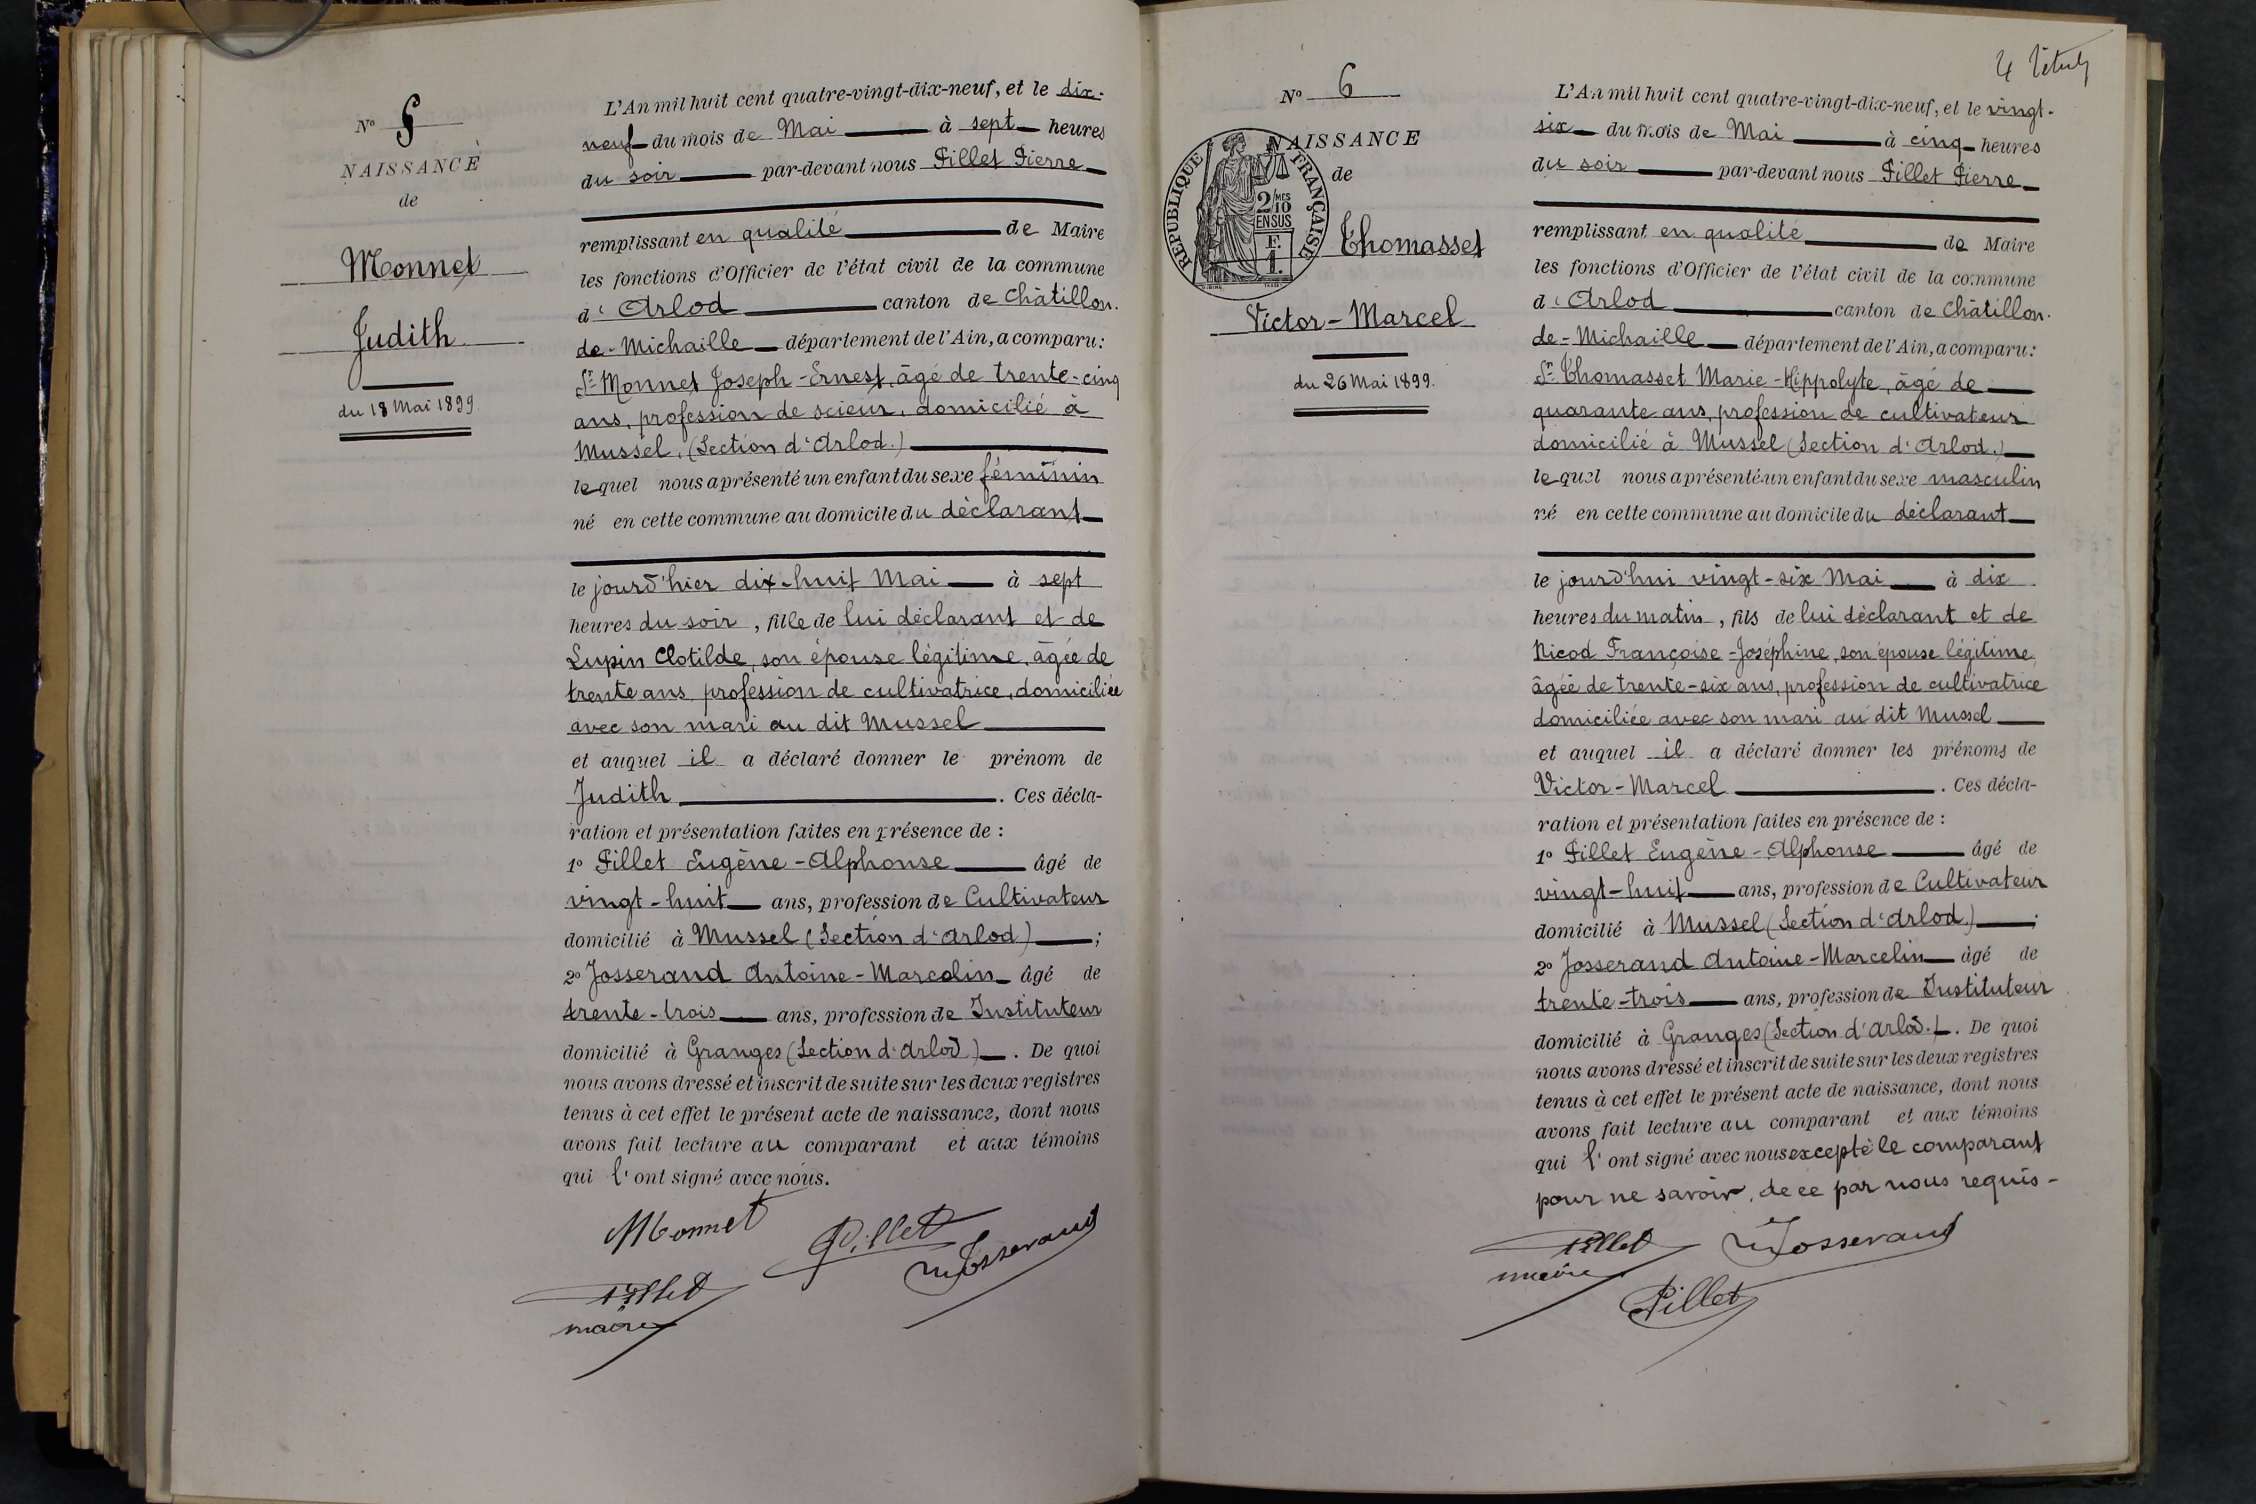 N° 5
NAISSANCE
de
Monnet
Judith
du 18 Mai 1899.
L'An mil huit cent quatre-vingt-dix-neuf, et le dix-
neuf du mois de Mai à sept heures
du soir par-devant nous Pillet Pierre
remplissant en qualité de Maire
les fonctions d'Officier de l'état civil de la commune
d'Arlod canton de Châtillon.
de-Michaille département de l'Ain, a comparu:
Sr Monnet Joseph-Ernest, âgé de trente-cinq
ans, profession de scieur, domicilié à
Mussel, (Section d'Arlod.)
lequel nous a présenté un enfant du sexe féminin
né en cette commune au domicile du déclarant
le jour d'hier dix-huit Mai à sept
heures du soir, fille de lui déclarant et de
Lupin Clotilde, son épouse légitime, âgée de
trente ans, profession de cultivatrice, domiciliée
avec son mari au dit Mussel
et auquel il a déclaré donner le prénom de
Judith. Ces décla-
ration et présentation faites en présence de :
1° Pillet Eugène-Alphonse âgé de
vingt-huit ans, profession de Cultivateur
domicilié à Mussel (Section d'Arlod) ;
2° Josserand Antoine-Marcelin âgé de
trente-trois ans, profession de Instituteur
domicilié à Granges (Section d'Arlod). De quoi
nous avons dressé et inscrit de suite sur les deux registres
tenus à cet effet le présent acte de naissance, dont nous
avons fait lecture au comparant et aux témoins
qui l'ont signé avec nous.
Monnet
Pillet
Josserand
Pillet
maire
N° 6
NAISSANCE
de
REPUBLIQUE FRANÇAISE
2/10 MES
EN SUS
F.
1.
Thomasset
Victor-Marcel
du 26 Mai 1899.
L'An mil huit cent quatre-vingt-dix-neuf, et le vingt-
six du mois de Mai à cinq heures
du soir par-devant nous Pillet Pierre
remplissant en qualité de Maire
les fonctions d'Officier de l'état civil de la commune
d'Arlod canton de Châtillon.
de-Michaille département de l'Ain, a comparu:
Sr Thomasset Marie-Hippolyte, âgé de
quarante ans, profession de cultivateur
domicilié à Mussel (Section d'Arlod.)
lequel nous a présenté un enfant du sexe masculin
né en cette commune au domicile du déclarant
le jour d'hui vingt-six Mai à dix
heures du matin, fils de lui déclarant et de
Nicod Françoise-Joséphine, son épouse légitime,
âgée de trente-six ans, profession de cultivatrice
domiciliée avec son mari au dit Mussel
et auquel il a déclaré donner les prénoms de
Victor-Marcel. Ces décla-
ration et présentation faites en présence de :
1° Pillet Eugène-Alphonse âgé de
vingt-huit ans, profession de Cultivateur
domicilié à Mussel (Section d'Arlod) ;
2° Josserand Antoine-Marcelin âgé de
trente-trois ans, profession de Instituteur
domicilié à Granges (Section d'Arlod.). De quoi
nous avons dressé et inscrit de suite sur les deux registres
tenus à cet effet le présent acte de naissance, dont nous
avons fait lecture au comparant et aux témoins
qui l'ont signé avec nous excepté le comparant
pour ne savoir, de ce par nous requis-
Pillet
maire
Josserand
Pillet